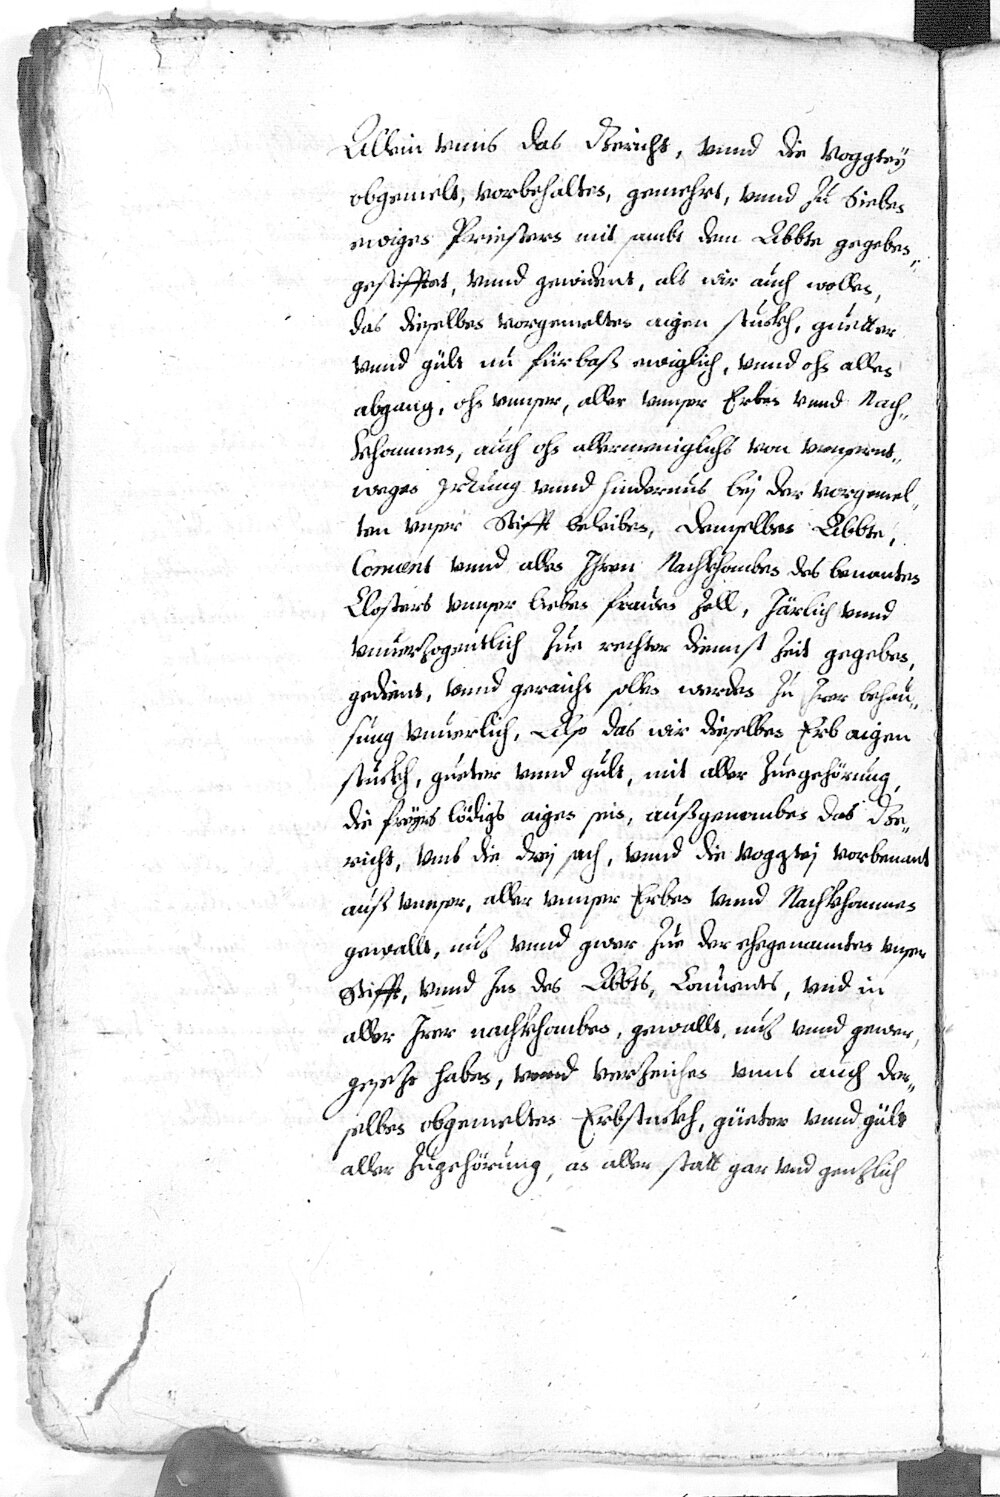 Allein vnns das Gericht, vnnd die Voggteÿ
obgemelt, vorbehalten, gemehrt, vnnd zu Sieben
ewigen Priestern mit sambt dem Abbte gegeben,
gestifftet, vnnd gewident, als wir auch wollen,
das dieselben vorgemelten aigen stuckh, guetter
vnnd gült nu fürbaß ewiglich, vnnd ohn allen
abgang, ohn vnnser, aller vnnser Erben vnnd Nach„
khommen, auch ohn allermeniglichs von vnnsernt„
wegen Irrung vnnd hindernus bej der vorgemel„
ten vnser Stifft beleiben, demselben Abbte,
Conuent vnnd allen Ihren Nachkhomben des benanten
Closters vnnser lieben frauen Zell, Järlich vnnd
vnuerzogentlich zue rechter diennst Zeit gegeben,
gedient, vnnd geraicht sollen werden zu Irer behau„
sung vnuerlich, Also das wir dieselben Erb aigen
stuckh, gueter vnnd gült, mit aller Zuegehörung,
die freÿes lödigs aigen sein, außgenomben das Ge„
richt, vmb die drej sach, vnnd die Voggtej vorbenant
auß vnnser, aller vnnser Erben vnnd Nachkhommen
gewallt, nuz vnnd gwer zue der ehegenannten vnser
Stifft, vnnd Inn des Abbts, Conuents, vnd in
aller Irer nachkhomben, gewallt, nuz vnnd gewer,
gesezt haben, vnnd verzeichen vnns auch der„
selben obgemelten Erbstuckh, güeter vnnd gült
aller Zugehörung, an aller statt gar vnd genzlich